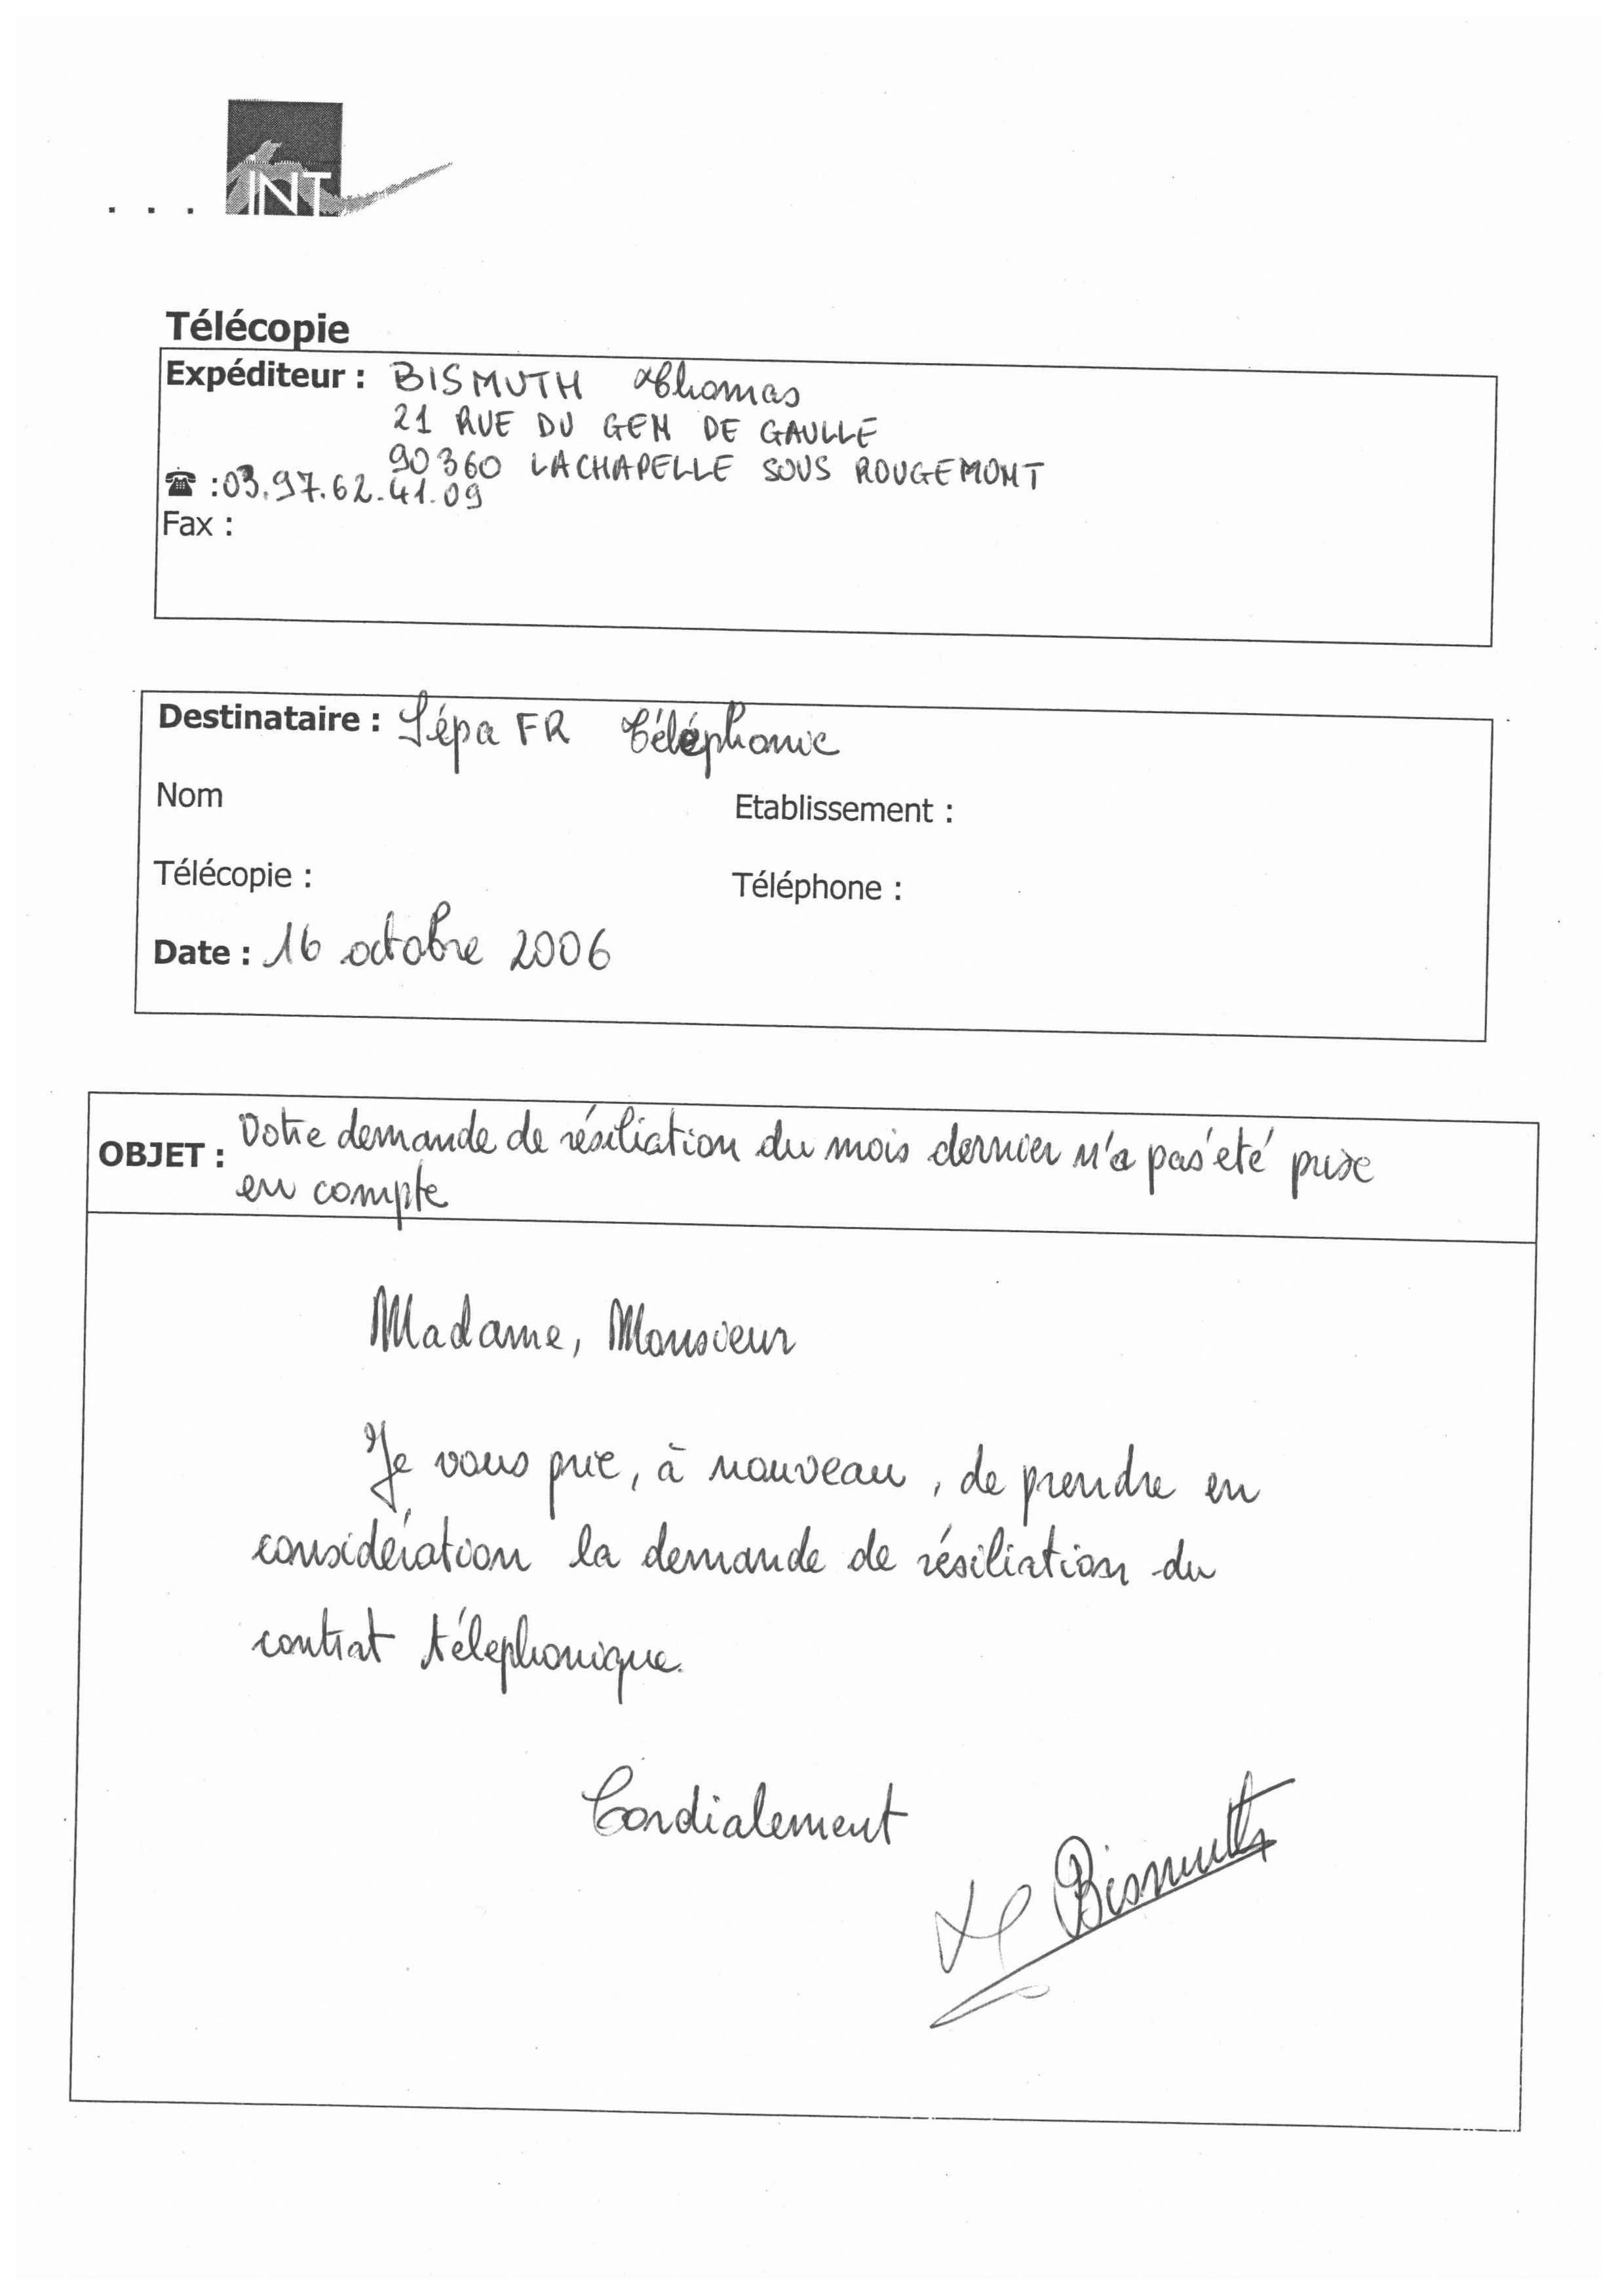 ... INT
Télécopie
Expéditeur : BISMUTH Thomas
21 RUE DU GEN DE GAULLE
90360 LACHAPELLE SOUS ROUGEMONT
☎ : 03.97.62.41.09
Fax :
Destinataire : Sépa FR Téléphonie
Nom
Etablissement :
Télécopie :
Téléphone :
Date : 16 octobre 2006
OBJET : Votre demande de résiliation du mois dernier n'a pas été prise
en compte
Madame, Monsieur
Je vous prie, à nouveau, de prendre en
considération la demande de résiliation du
contrat télephonique.
Cordialement
Bismuth